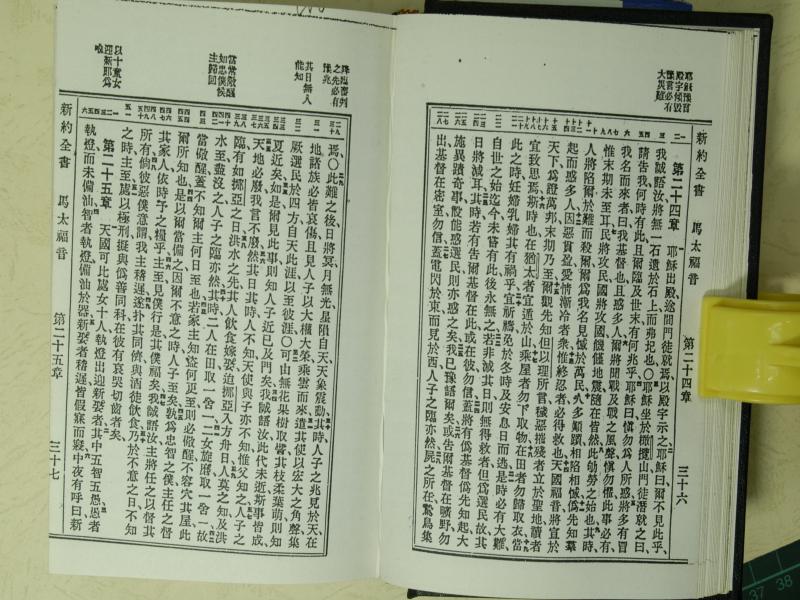 新約全書　馬太福音　第二十四章　三十六
耶穌預言
殿宇傾毀
豫言必有
大災難
第二十四章　耶穌出殿、遄閱門徒就焉以殿宇示之、耶穌曰爾不見此乎、
我誠語汝將無一石遺於石上而弗圮也○耶穌坐於橄欖山門徒潛就之曰、
請告我何時有此且爾臨及世末有何兆乎耶穌曰慎勿為人所惑將多有冒
我名而來者曰我基督也且惑多人爾將聞戰及戰之風聲慎勿懼此事必有
惟末期未至耳民將攻民國將攻國饑饉地震隨在皆然此劬勞之始也其時
人將陷爾於難而殺爾爾為我名見憾於萬民多顛躓相陷相憾偽先知羣
起而惑多人因惡貫盈愛情漸冷者眾惟終忍者必得救也天國福音將宣於
天下為證萬邦末期乃至爾觀先知但以理所言穢惡摧殘者立於聖地讀者
宜致思焉斯時也在猶太者宜適於山乘屋者勿下取物在田者勿歸取衣當
此之時妊婦乳婦其有禍乎宜祈禱免於冬時及安息日而遁是時必有大難
自世之始迄今未嘗有此後永無之若非減其日則無得救者但為選民故其
日將減耳其時若有告爾基督在此或在彼勿信蓋將有偽基督偽先知起大
施異蹟奇事設能惑選民則亦惑之矣我已豫語爾矣或告爾基督在曠野勿
出基督在密室勿信蓋電閃於東而見於西人子之臨亦然屍之所在鷲鳥集
之先必有
豫兆
其日無人
能知
當常儆醒
如忠僕候
主歸回
以十童女
迎新郎為
喻
焉○此難之後日將冥月無光星隕自天天象震動其時人子之兆見於天在
地諸族必皆哀傷且見人子以大權大榮乘雲而來遣其使以宏大之角聲集
厥選民於四方自天此涯以至彼涯○可由無花果樹取譬其枝柔葉萌則知
夏近矣如是爾見此事則知人子近已及門矣我誠語汝此代未逝斯事皆成
天地必廢我言不廢然其日其時人不知天使與子亦不知惟父知之人子之
臨有如挪亞之日洪水之先其人飲食嫁娶迨挪亞入方舟日人莫之知及洪
水至盡沒之人子之臨亦然其時二人在田取一舍一二女旋磨取一舍一故
當儆醒蓋不知爾主何日至也若家主知盜何更至則必儆醒不容穴其屋此
爾所知也是以爾當備之因爾不意之時人子至矣孰為忠智之僕主任之督
其家人依時予之糧乎主至見僕行是其僕福矣我誠語汝主將任之以督其
所有倘彼惡僕意謂我主稽遲遂扑其同儕與酒徒飲食乃於不意之日不知
之時主至處以極刑擬與偽善同科在彼有哀哭切齒者矣
第二十五章　天國可比處女十人執燈出迎新娶者其中五智五愚愚者
執燈而未備油智者執燈備油於器新娶者稽遲皆假寐而寢中夜有呼曰新
新約全書　馬太福音　第二十五章　三十七
37 38